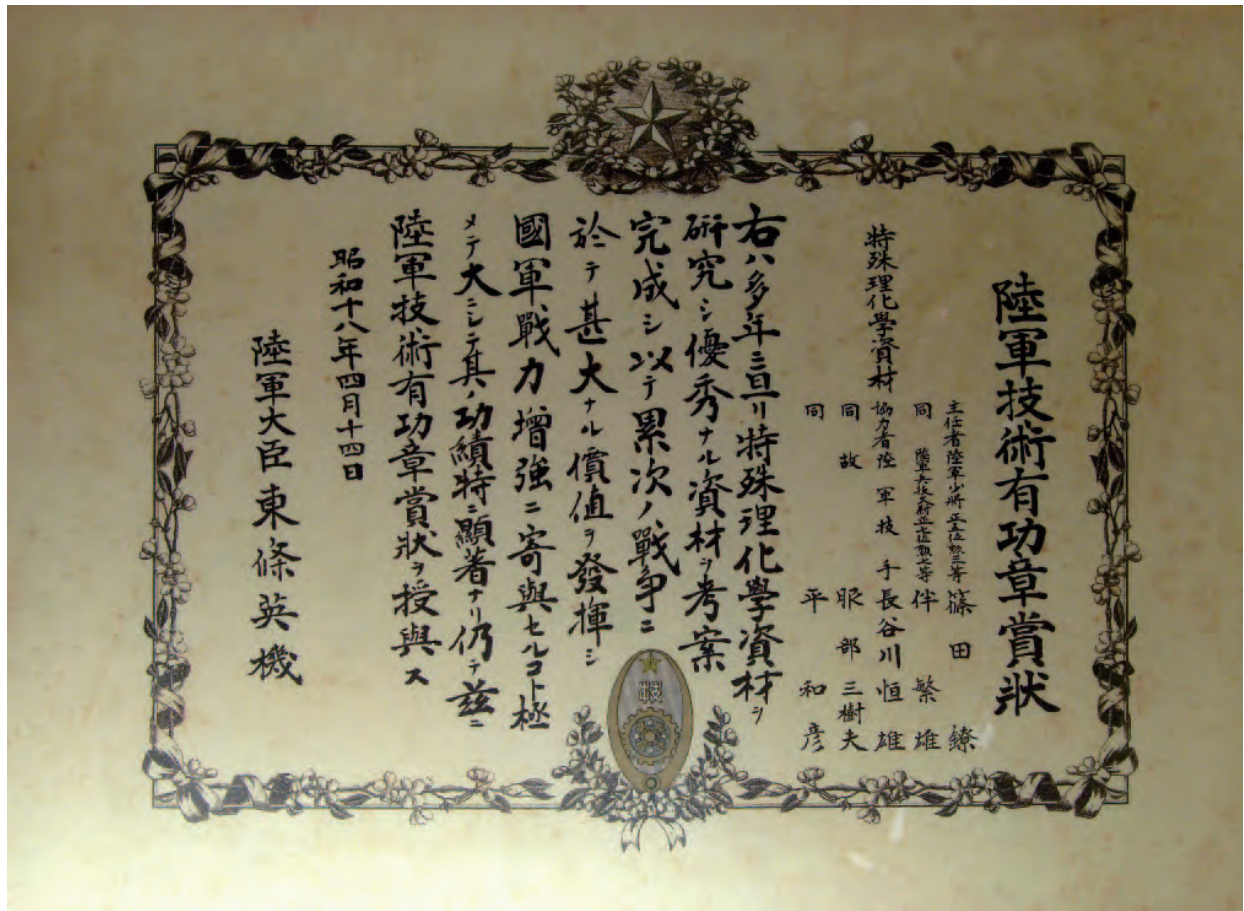 陸軍技術有功章賞狀
主任者陸軍少將正五位勲三等篠田鐐
同 陸軍兵技大尉正七位勲七等伴繁雄
特殊理化學資材
協力者陸軍技手長谷川恒雄
同故 服部三樹夫
同 平和彦
右ハ多年ニ亘リ特殊理化學資材ヲ
硏究シ優秀ナル資材ヲ考案
完成シ以テ累次ノ戰爭ニ
於テ甚大ナル價値ヲ發揮シ
國軍ノ戰力增強ニ寄與セルコト極
メテ大ニシテ其ノ功績特ニ顯著ナリ仍テ茲ニ
陸軍技術有功章賞狀ヲ授與ス
昭和十八年四月十四日
陸軍大臣東條英機
技